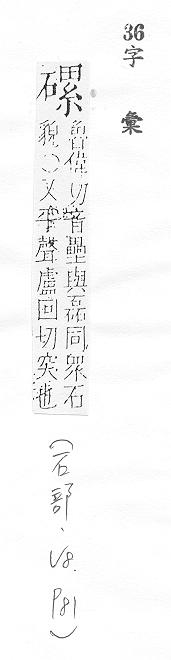 36字 彙
磥
魯偉切音壘與磊同眾石
貌〇又平聲盧回切突也
(石部、V8. P81)